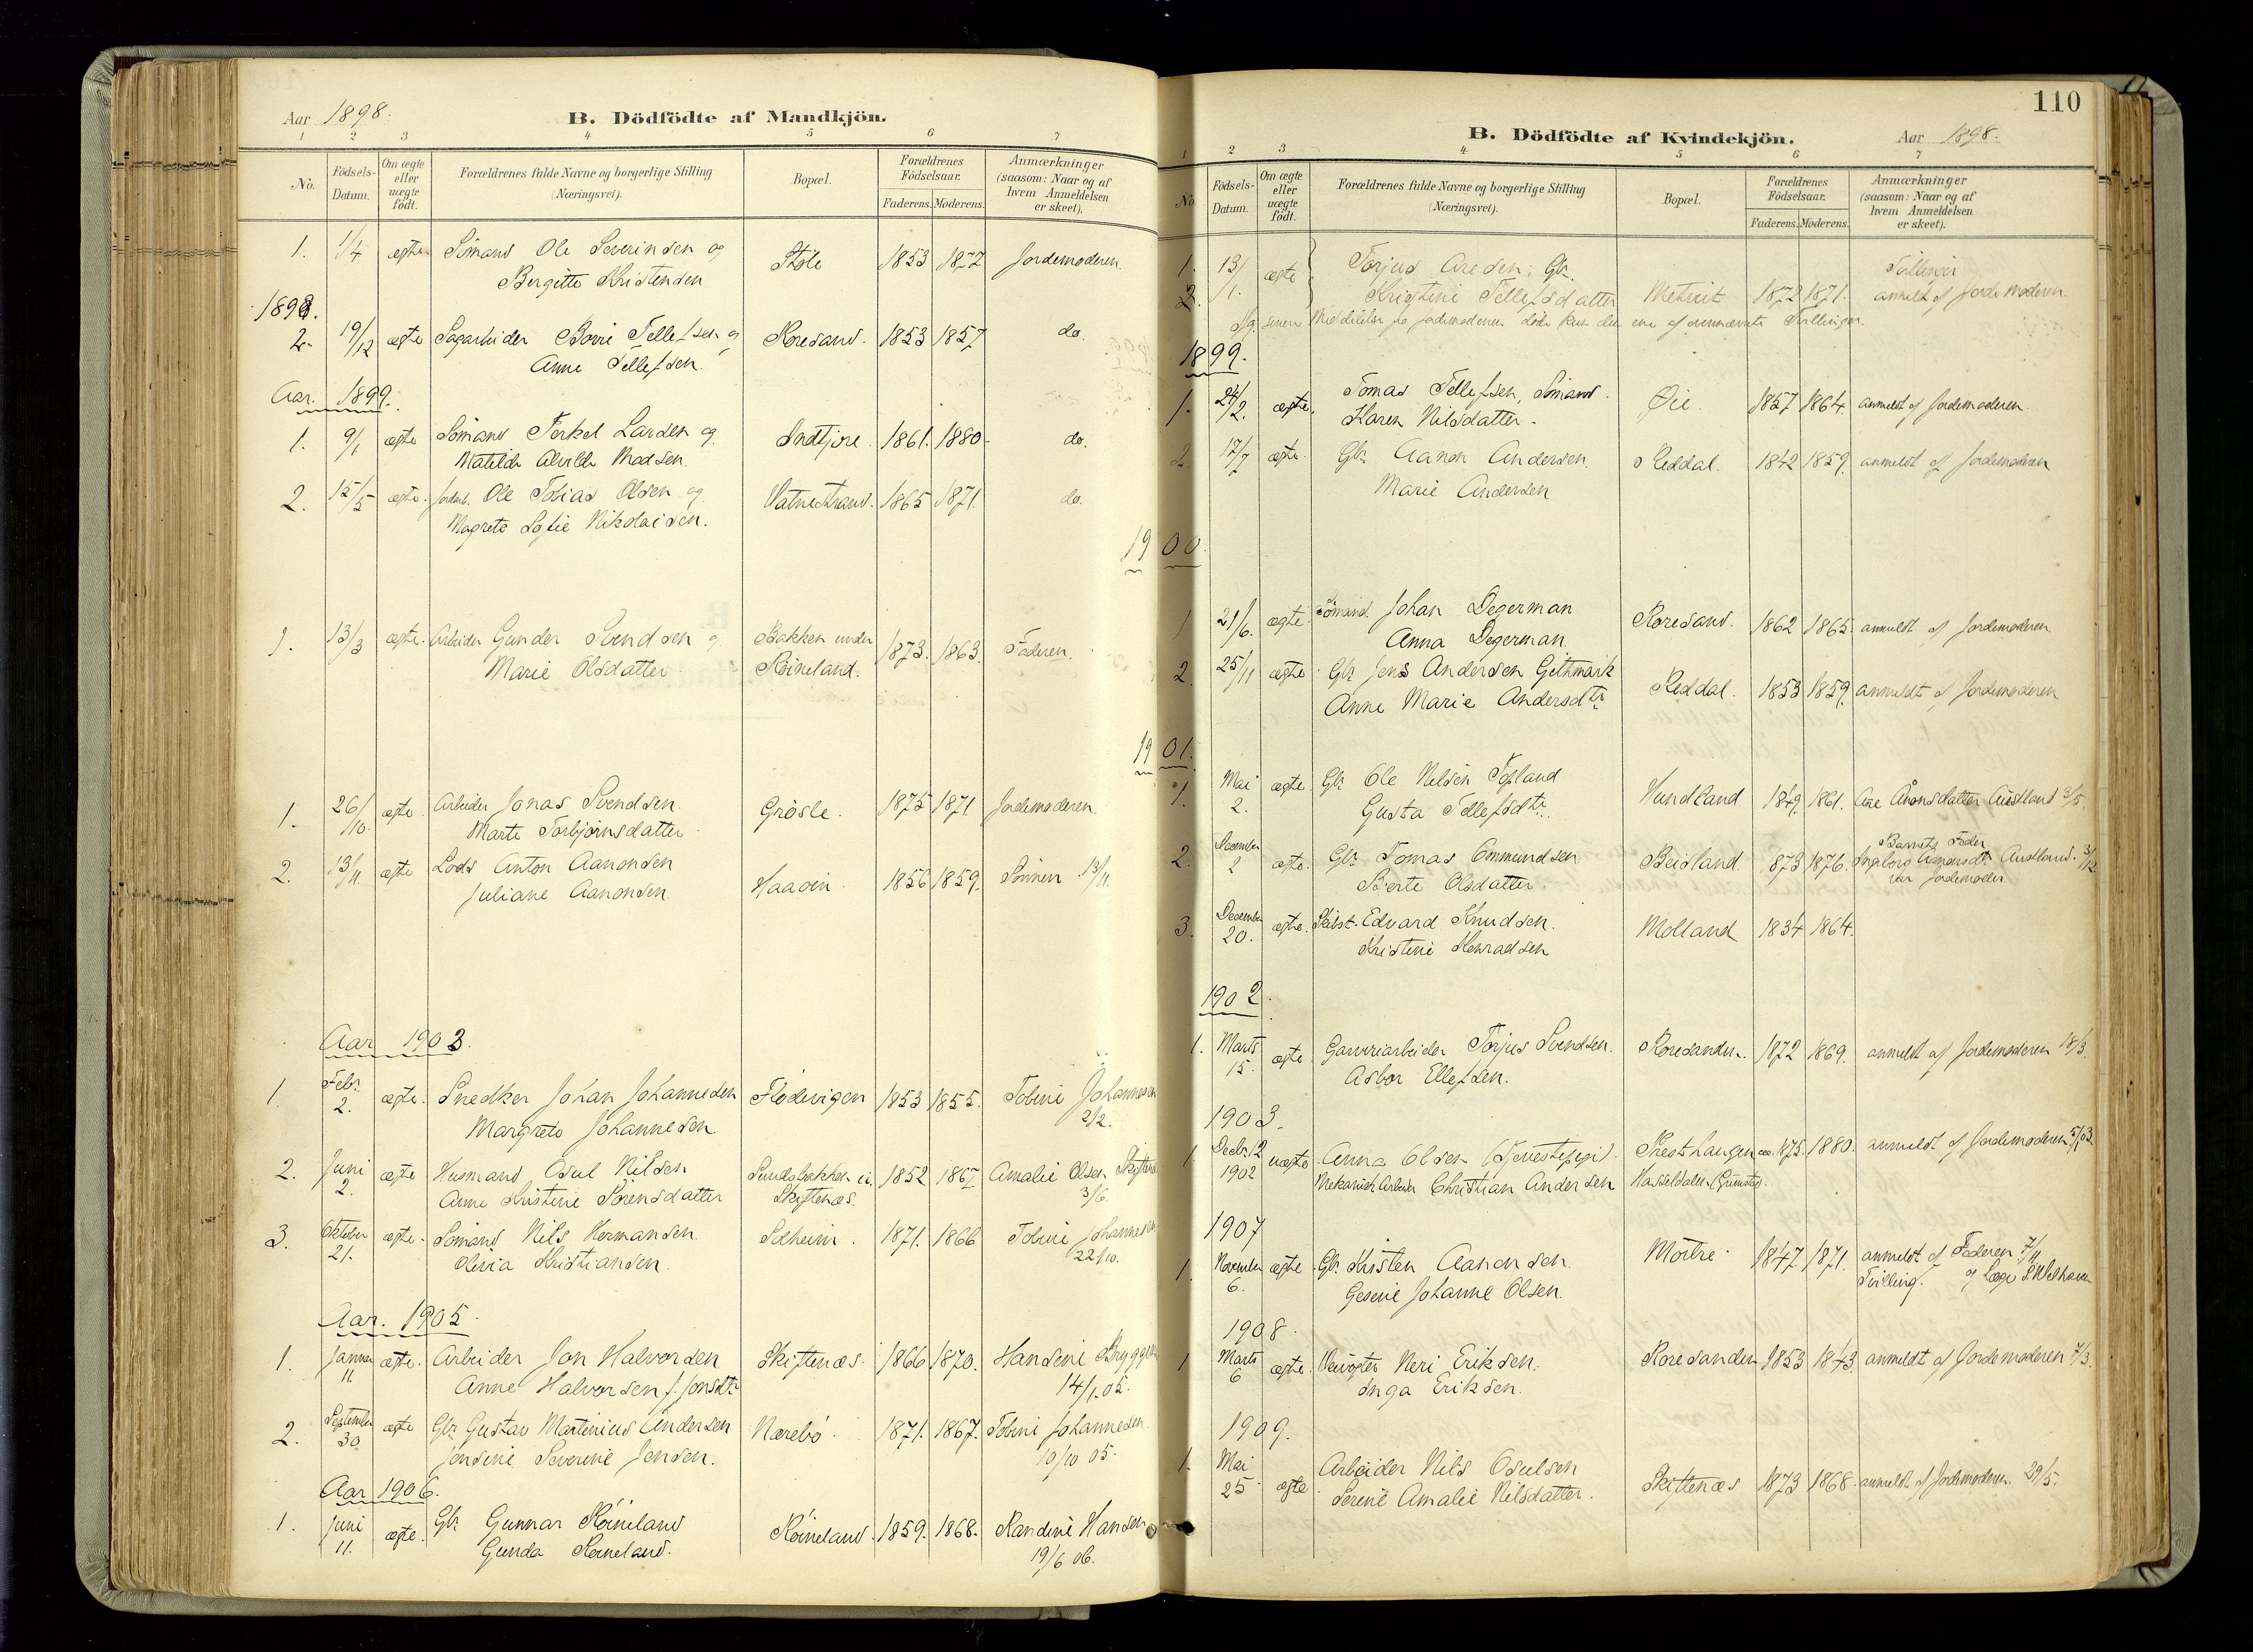 Aar 1898.
B. Dödfödte af Mandkjön.
1 2 3 4 5 6 7
No.
Födsels-Datum.
Om ægte eller uægte födt.
Forældrenes fulde Navne og borgerlige Stilling (Næringsvei).
Bopæl.
Forældrenes Födselsaar.
Faderens. Moderens.
Anmærkninger (saasom: Naar og af hvem Anmeldelsen er skeet).
1. 1/4 ægte Sömand Ole Severinsen og Støle 1853 1872 Jordemoderen.
Bergitte Kristensen
1898.
2. 19/12 ægte Sagarbeider Borre Tellefsen og Roresand. 1853 1857 do.
Anne Tellefsen.
Aar. 1899.
1. 9/1 ægte Sömand Terkel Larsen og 1861. 1880. do.
Matilde Alvilde Madsen.
2. 15/5 ægte. Ole Tobias Olsen og Vatnestrand. 1865 1871. do.
Magrete Sofie Nikolaisen.
1900.
1. 13/3 ægte. Arbeider Gunder Svendsen og Bakken under 1873. 1863. Faderen.
Marie Olsdatter Röineland.
1901.
1. 26/10. ægte Arbeider Jonas Svendsen. Grösle. 1875 1871 Jordemoderen.
Marte Torbjörnsdatter.
2. 13/11. ægte Lods Anton Aanonsen Haaöen. 1856 1859. Sönnen 13/11.
Juliane Aanonsen.
Aar 1903.
1. Febr. 2. ægte. Snedker Johan Johannesen Flödevigen 1853 1855. Tobine Johannesen
Margrete Johannesen 2/2.
2. Juni 2. ægte Husmand Osul Nilsen Sundsbakken u. 1852 1867. Amalie Olsen
Anne Kristine Sörensdatter Skiftenæs. 3/6.
3. Oktober 21. ægte. Sömand Nils Hermansen. Solheim. 1871. 1866 Tobine Johannesen
Olivia Kristiansen. 22/10.
Aar. 1905.
1. Januar 11 ægte. Arbeider Jon Halvorsen Skiftenæs. 1866 1870. Hansine
Anne Halvorsen f. Jonsdtr. 14/1. 05.
2. September 30 ægte Gbr. Gustav Martinius Andersen Nærebö. 1871. 1867. Tobine Johannesen
Jensine Severine Jensen. 10/10 05.
Aar 1906.
1. Juni 11. ægte. Gbr. Gunnar Röineland Röineland. 1859. 1868. Randine Hansen
Gunda Röineland. 19/6 06.
110
B. Dödfödte af Kvindekjön.
Aar 1898.
1 2 3 4 5 6 7
No.
Födsels-Datum.
Om ægte eller uægte födt.
Forældrenes fulde Navne og borgerlige Stilling (Næringsvei).
Bopæl.
Forældrenes Födselsaar.
Faderens. Moderens.
Anmærkninger (saasom: Naar og af hvem Anmeldelsen er skeet).
1. 13/1. ægte Torjus Aresen. Gbr. Tvillinger
2. Kristine Tellefsdatter Metveit 1872 1871. anmeldt af Jordemoderen.
senere Meddelelse fra Jordemoderen döde kun den ene af Tvillinger.
1899.
1. 24/2. ægte. Tomas Tellefsen, Sömand. Øie. 1857 1864. anmeldt af Jordemoderen.
Karen Nilsdatter.
2 17/7 ægte. Gbr. Aanon Andersen. Reddal. 1842 1859. anmeldt af Jordemoderen
Marie Andersen
1 21/6. ægte. Sömand. Johan Degerman Roresand. 1862 1865. anmeldt af Jordemoderen
Anna Degerman.
2. 25/11 ægte. Gbr. Jens Andersen Githmark Reddal. 1853 1859. anmeldt af Jordemoderen
Anne Marie Andersdtr.
1. Mai 2. ægte. Gbr. Ole Nilsen Topland Hundland 1849. 1861. Ane Aanonsdatter Austland 3/5.
Gusta Tellefsdtr.
2. December 2 ægte. Gbr. Tomas Ommundsen Beisland 873 1876. Barnets Fader
Berte Olsdatter. Ingeborg Austland. 3/12
var Jordemoder
3. December 20. ægte. Skibst. Edvard Knudsen. Molland 1834 1864.
Kristine Konradsen
1902.
1. Marts 15. ægte. Garveriarbeider Torjus Svendsen. Roresanden. 1872 1869. anmeldt af Jordemoderen 18/3.
Asbor Ellefsen.
1903.
1 Decbr. 12 1902 uægte. Anna Olsen (Tjenestepige). 1875. 1880. anmeldt af Jordemoderen 5/1 03.
Mekanisk Arbeider Christian Andersen Hasseldalen (Grimstad).
1907
1. November 6. ægte. Gbr. Kristen Aanonsen. Moltre. 1847 1871. anmeldt af Faderen 7/11
Gesine Johanne Olsen. Tvilling. og Læge
1908.
1 Marts 6 ægte. Veivogter Neri Eriksen. Roresanden 1853 1843. anmeldt af Jordemoderen 7/3.
Inga Eriksen.
1909.
1. Mai 25 ægte. Arbeider Nils Osulsen Skiftenæs 1873 1868. anmeldt af Jordemoderen. 29/5.
Serene Amalie Nilsdatter.